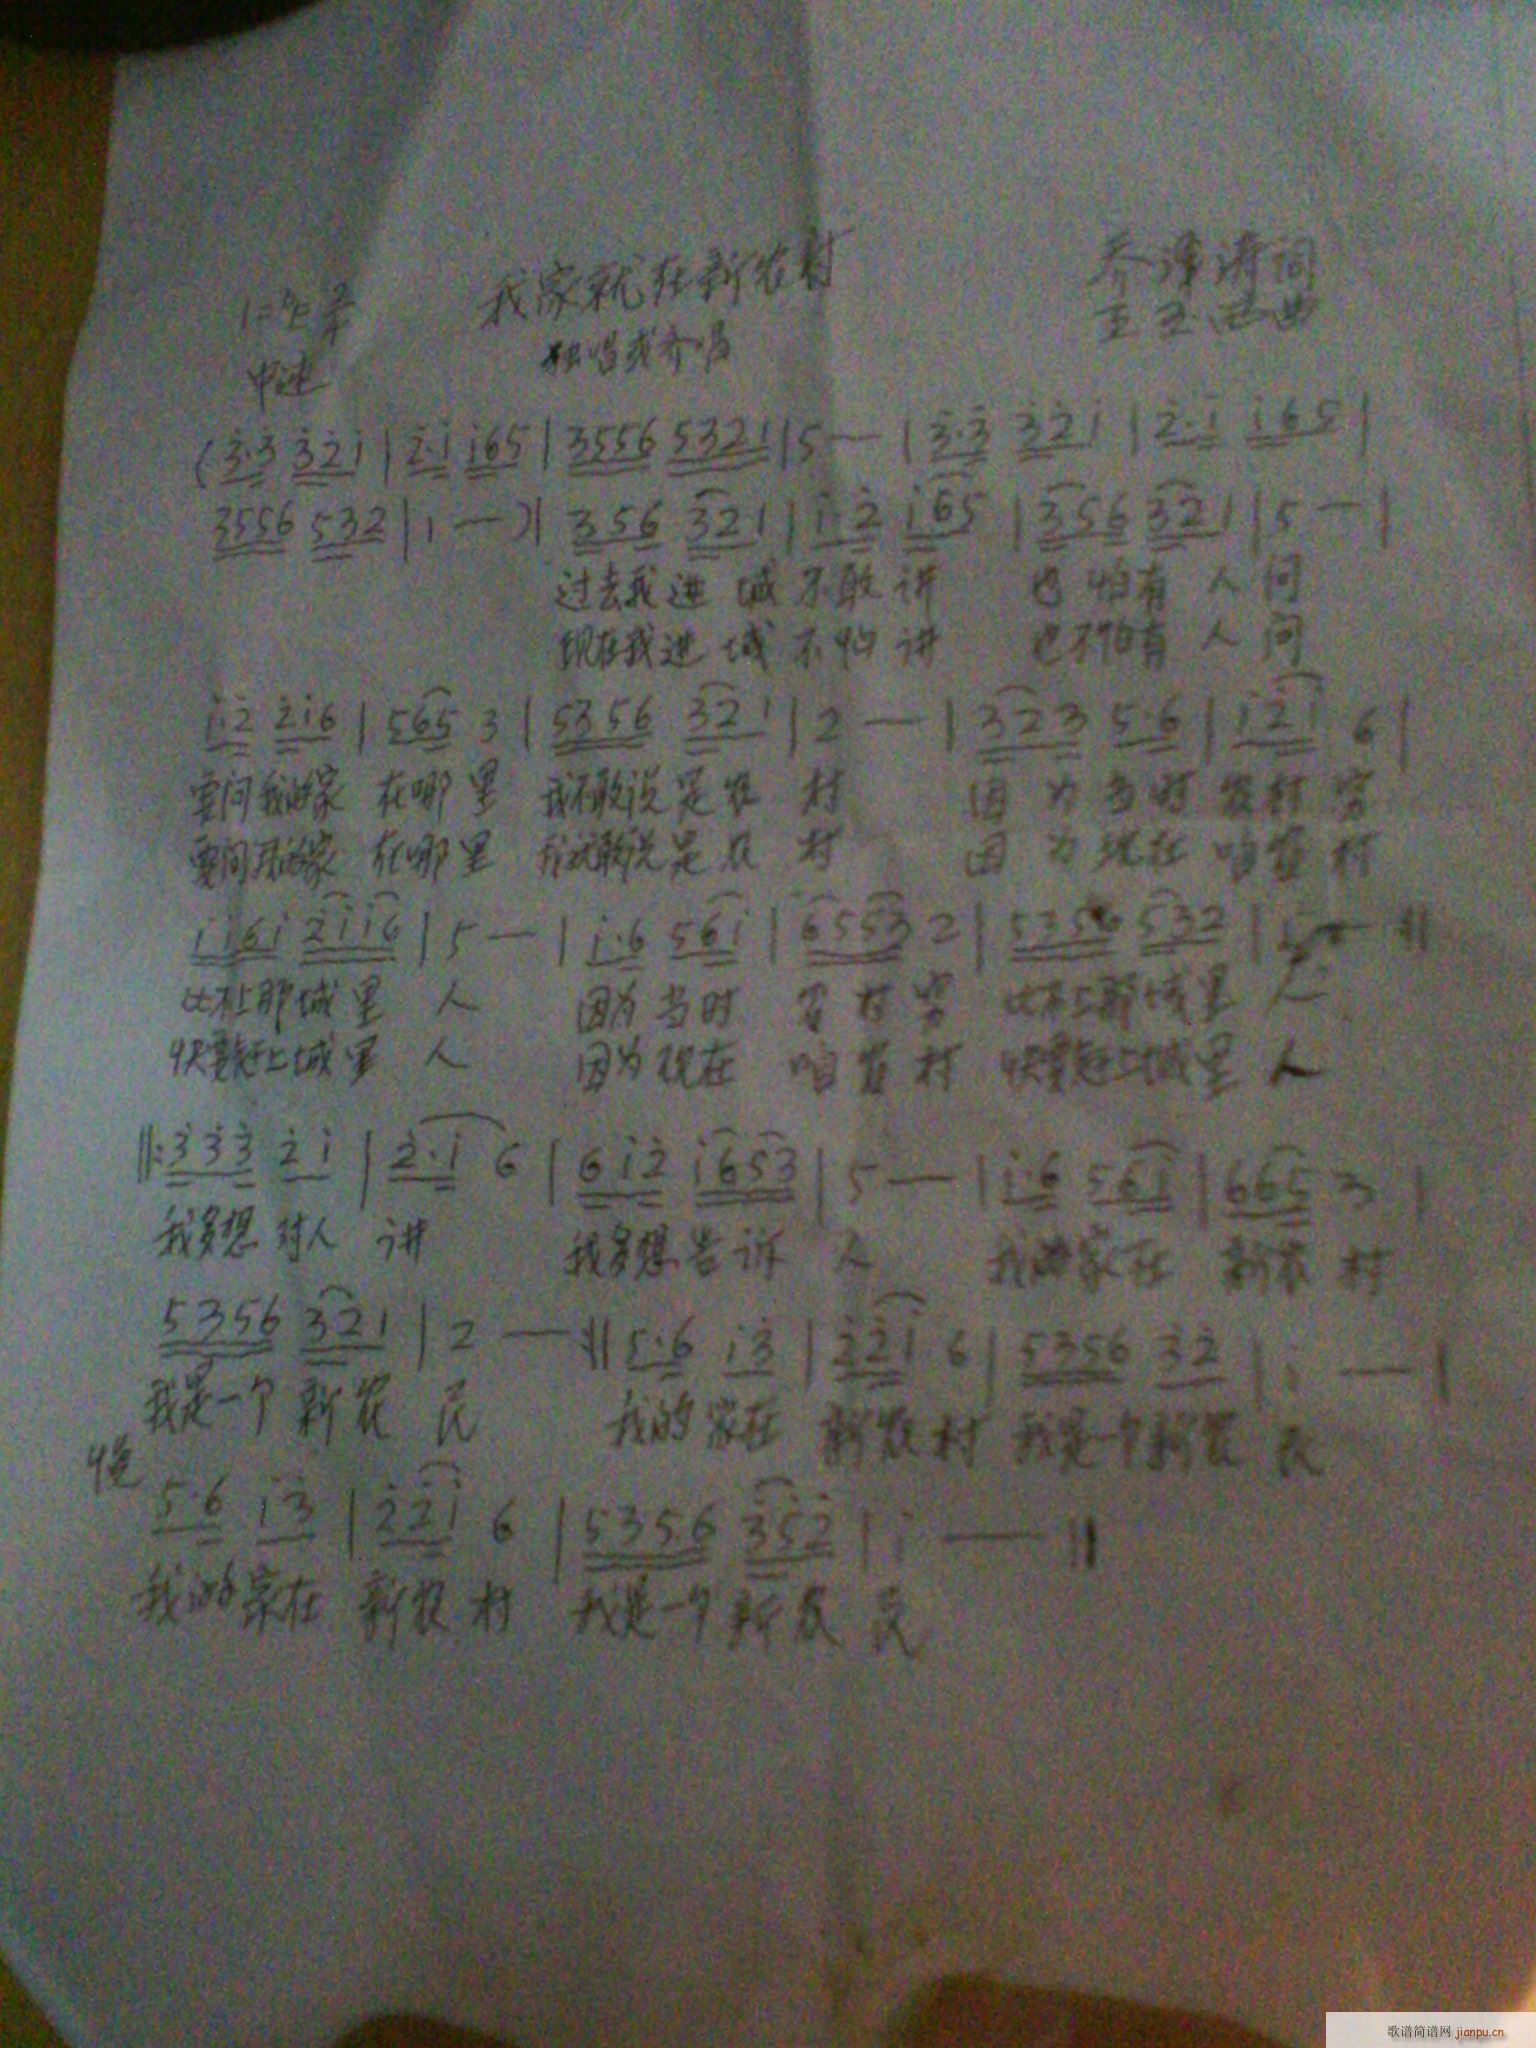 我家就在新农村
乔泽涛词
独唱或齐唱
中速
(3·3 321 | 2·1 165 | 3556 5321 | 5 — | 3·3 321 | 2·1 165 |
3556 532 | 1 — )| 356 321 | 1·2 165 | 356 321 | 5 — |
过去我进城不敢讲 也怕有人问
现在我进城不怕讲 也不怕有人问
1·2 216 | 565 3 | 5356 321 | 2 — | 323 5·6 | 121 6 |
要问我的家在哪里 我不敢说是农村 因为当时农村穷
要问我的家在哪里 我就敢说是农村 因为现在咱农村
1161 2116 | 5 — | 1·6 561 | 6553 2 | 5356 532 | 1 — ||
比不上那城里人 因为当时农村穷 比不上那城里人
快要赶上城里人 因为现在咱农村 快要赶上城里人
||: 333 21 | 2·1 6 | 612 1653 | 5 — | 1·6 561 | 665 3 |
我多想对人讲 我多想告诉人 我的家在新农村
5356 321 | 2 — :|| 5·6 13 | 221 6 | 5356 32 | 1 — |
我是一个新农民 我的家在新农村 我是一个新农民
慢
5·6 13 | 221 6 | 5356 352 | 1 — ||
我的家在新农村 我是一个新农民
歌谱简谱网 jianpu.cn